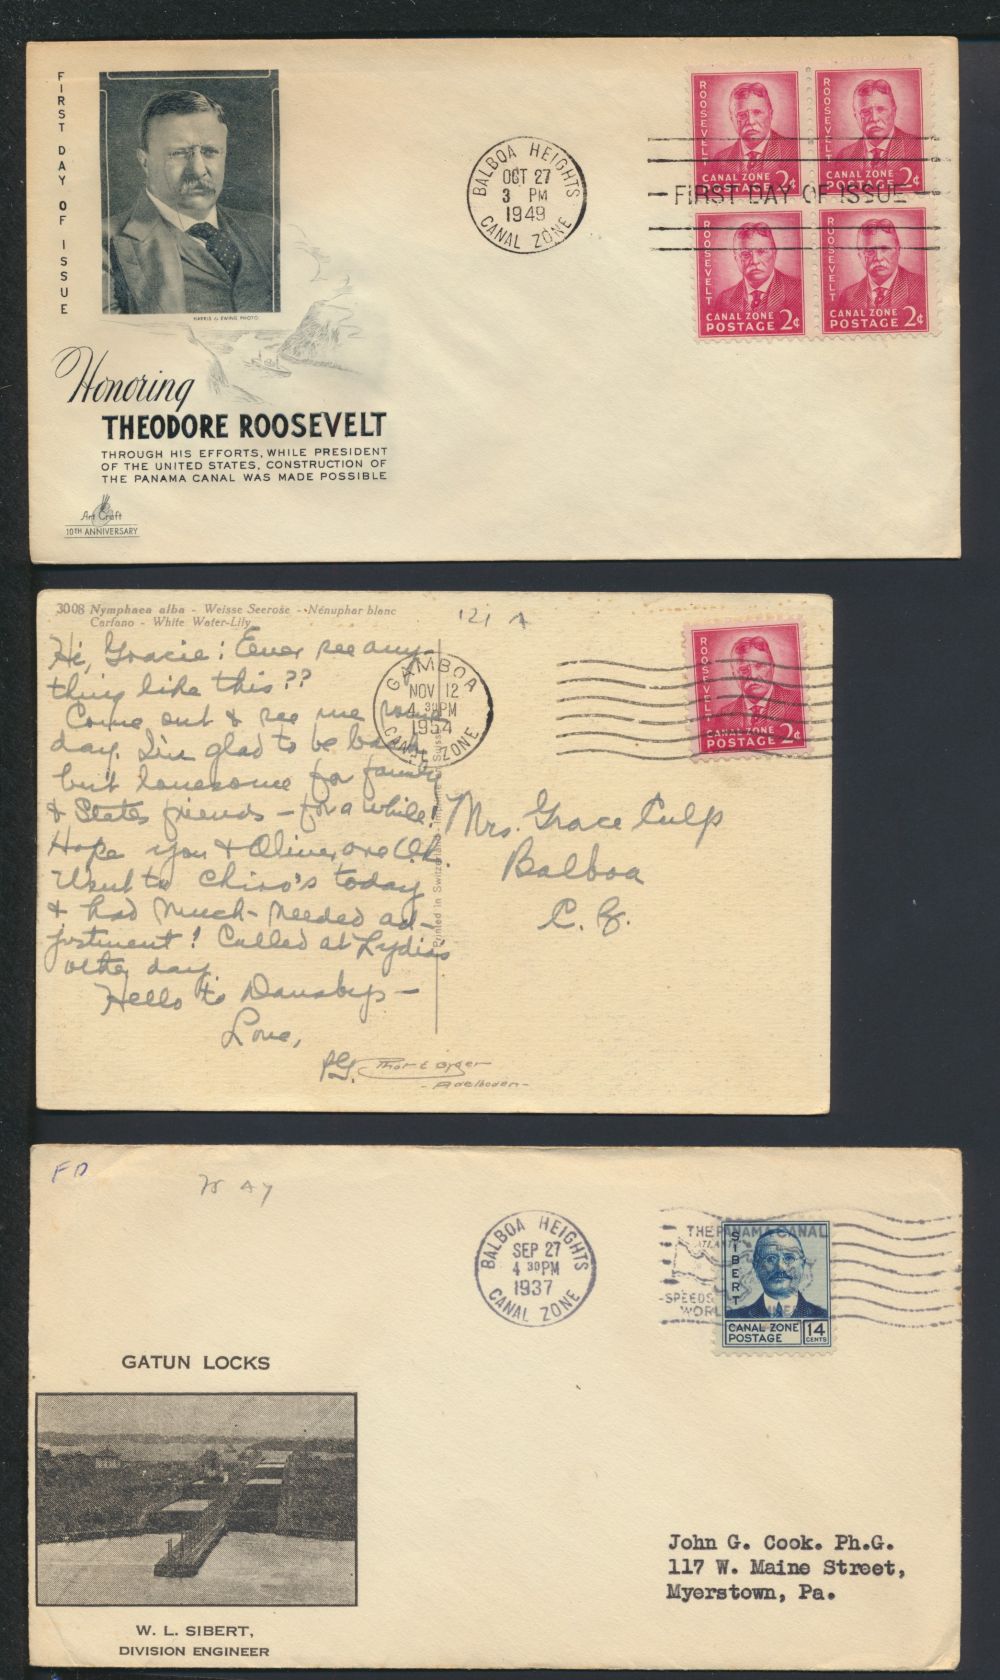 FIRST DAY OF ISSUE
HARRIS & EWING PHOTO
Honoring
THEODORE ROOSEVELT
THROUGH HIS EFFORTS, WHILE PRESIDENT
OF THE UNITED STATES, CONSTRUCTION OF
THE PANAMA CANAL WAS MADE POSSIBLE
Art Craft
10TH ANNIVERSARY
BALBOA HEIGHTS
OCT 27
3 PM
1949
CANAL ZONE
FIRST DAY OF ISSUE
ROOSEVELT
CANAL ZONE
POSTAGE 2¢
ROOSEVELT
CANAL ZONE
POSTAGE 2¢
ROOSEVELT
CANAL ZONE
POSTAGE 2¢
ROOSEVELT
CANAL ZONE
POSTAGE 2¢
3008 Nymphaea alba - Weisse Seerose - Nénuphar blanc
Carfano - White Water-Lily
121 A
Hi, Gracie: Ever see any-
thing like this??
Come out & see me some
day. I'm glad to be back
but lonesome for family
& States friends - for a while!
Hope you & Oliver are O.K.
Went to Chiro's today
& had much-needed ad-
justment! Called at Lydias
other day.
Hello to Dansbys -
Love,
PG.
Adelboden
Printed in Switzerland
GAMBOA
NOV 12
4 30 PM
1954
CANAL ZONE
ROOSEVELT
CANAL ZONE
POSTAGE 2¢
Mrs. Grace Culp
Balboa
C. Z.
FD
BALBOA HEIGHTS
SEP 27
4 30 PM
1937
CANAL ZONE
THE PANAMA CANAL
ATLANTIC
SPEEDS
WORLD
SIBERT
CANAL ZONE
POSTAGE
14
CENTS
GATUN LOCKS
W. L. SIBERT,
DIVISION ENGINEER
John G. Cook. Ph.G.
117 W. Maine Street,
Myerstown, Pa.